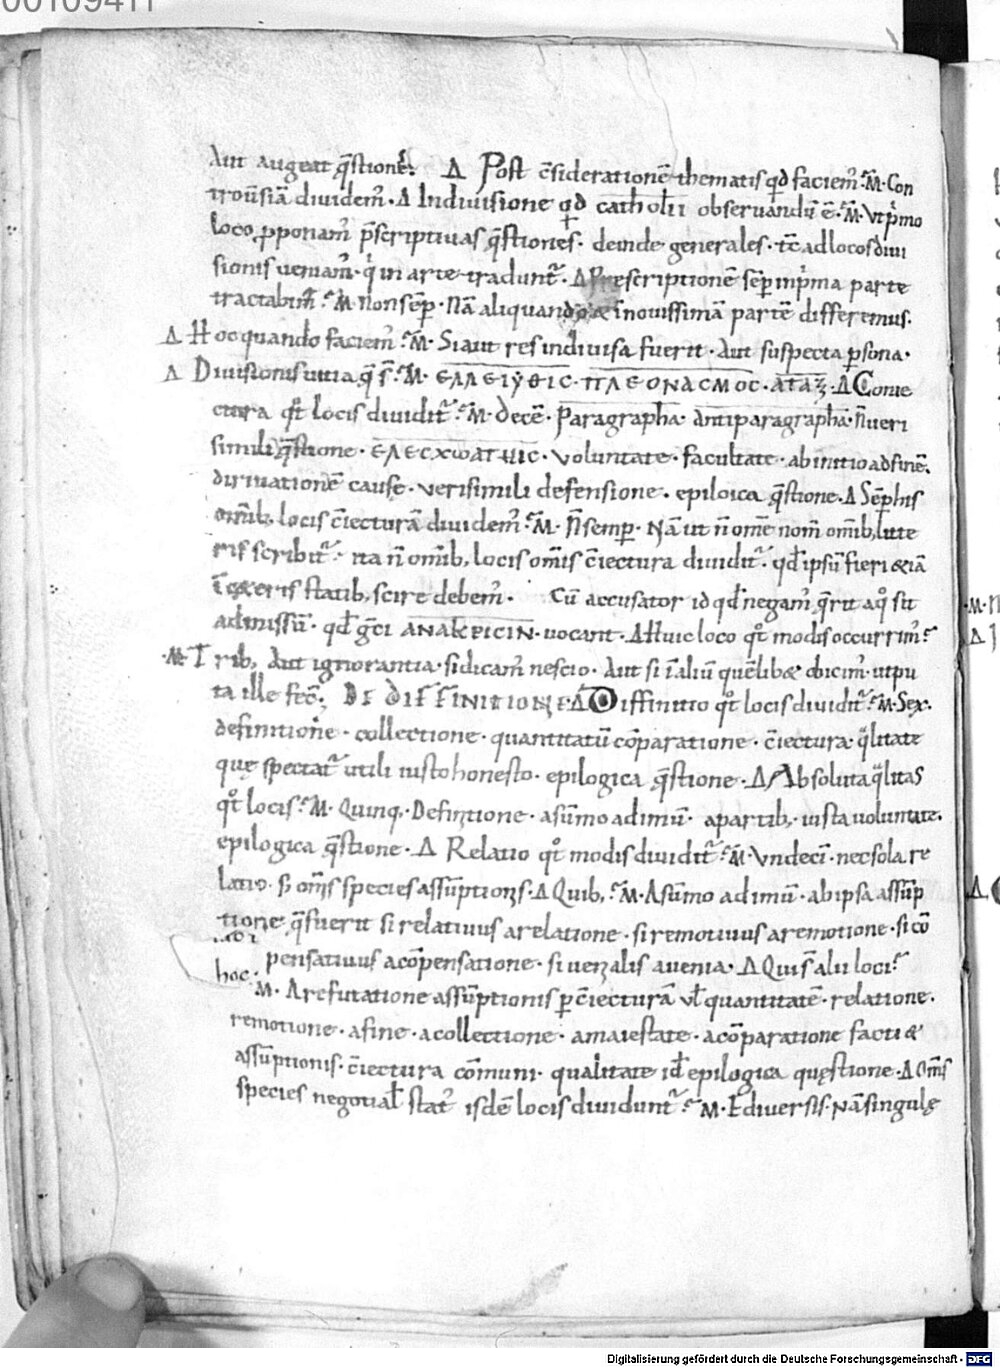 00109411
Aut augeat q̄stionē. Δ Post c̄siderationē thematis qd̄ faciem᷒. M̄. Con
trou͞siā diuidem᷒. Δ Indiuisione qd catholii obseruandū ē. M̄. Vt p̍mo
loco ꝓponam᷒ p̄scriptiuas q̄stiones. deinde generales. tc̄ ad locos diui
sionis ueniam᷒. q̍ in arte tradunt᷒. Δ Prescriptionē sēp in p̍ma parte
tractabim᷒. M̄. Non sēp. Nā aliquando & in nouissimā partē differemus.
Δ Hoc quando faciem᷒. M̄. Si aut res indiuisa fuerit. Aut suspecta ꝑsona.
Δ Diuisionis uitia q̄ s̄. M̄. ΕΛΛΕΙΨΘΙC. ΠΛΕΟΝΑCΜΟC. ΑΤΑΞ. Δ Conie
ctura qt̊ locis diuidit᷒. M̄. Decē. Paragrapha. antiparagrapha. n̄ ueri
simili q̄stione. ΕΛΕCΧΩΑΓΗΙC. voluntate. facultate. ab initio ad finē.
diriuationē cause. verisimili defensione. epiloica q̄stione. Δ Sēp his
omīb; locis c̄iecturā diuidem᷒. M̄. N̄ semper. Nā ut n̄ ome nom̄ omīb; litte
ris scribit᷒. ita n̄ omīb; locis omīs c̄iectura diuidit᷒. qd̄ ipsū fieri & iā
ī ceteris statib; scire debem᷒. Cū accusator id qd̄ negam᷒ q̄rit a q̊ sit
admissū. qd̄ gc̄i ΑΝΑΚΡΙCΙΝ. uocant. Δ Huic loco qt̊ modis occurrim᷒.
.M. Trib; Aut ignorantia. si dicam᷒ nescio. Aut si ī aliū quēlib& obicim᷒. ut pu
ta ille fec̄. DE DIFFINITIONE. Δ Diffinitio qt̊ locis diuidit᷒. M. Sex.
definitione. collectione. quantitatū cōparatione. c̄iectura. q̄litate
quę spectat᷒ utili iusto honesto. epilogica q̄stione. Δ Absoluta q̄litas
qt̊ locis. M̄. Quinq;. Definitione. a sūmo ad imū. a partib;. iusta uoluntate.
epilogica q̄stione. Δ Relatio qt̊ modis diuidit᷒. M̄. Vndeci. nec sola re
latio. s; om̄s species assūptionis. Δ Quib;. M̄. A sūmo ad imū. ab ipsa assūp
tione q̄ fuerit si relatiuus a relatione. si remotiuus a remotione. si cō
hoc. pensatiuus a cōpensatione. si uenialis a uenia. Δ Qui s̄ alii loci.
M. A refutatione assūptionis ꝑ c̄iecturā ul̄ quantitatē. relatione.
remotione. a fine. a collectione. a maiestate. a cōparatione facti &
assūptionis. c̄iectura cōmuni. qualitate id̄ epilogica quęstione. Δ Om̄s
species negotial̄ stat᷒ isdē locis diuidunt᷒. M. E diuersis. Nā singulę
Digitalisierung gefördert durch die Deutsche Forschungsgemeinschaft - DFG